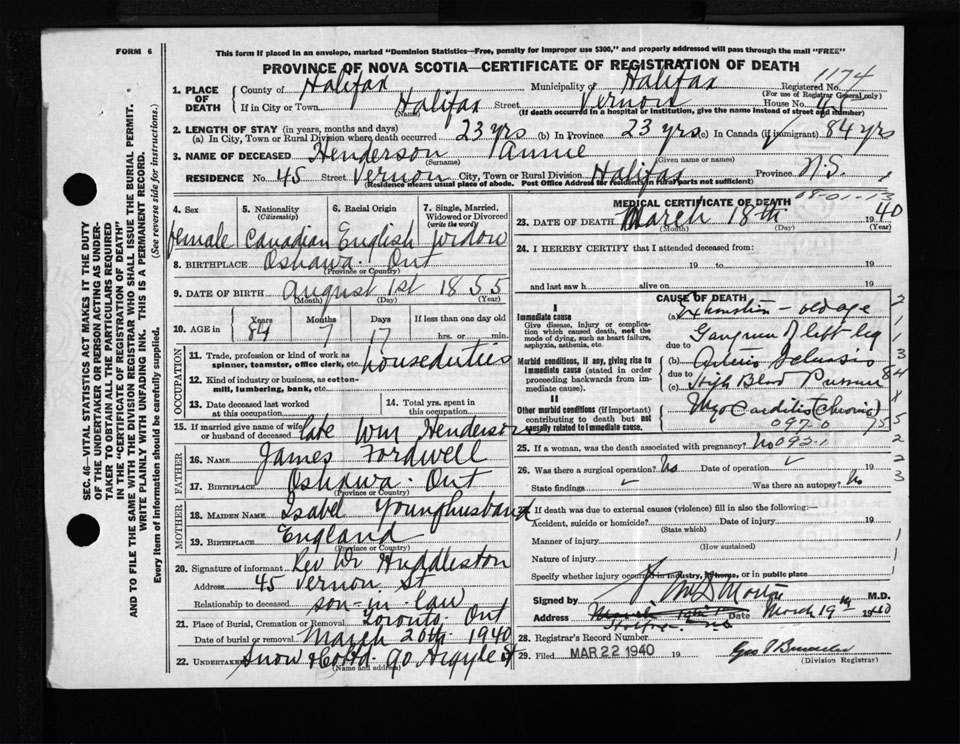 FORM 6
This form if placed in an envelope, marked "Dominion Statistics—Free, penalty for improper use $300," and properly addressed will pass through the mail "FREE"
PROVINCE OF NOVA SCOTIA—CERTIFICATE OF REGISTRATION OF DEATH
1174
1. PLACE OF DEATH
County of Halifax Municipality of Halifax Registered No.
(For use of Registrar General only)
If in City or Town Halifax Street Vernon House No. 45
(Name) (If death occurred in a hospital or institution, give the name instead of street and number)
2. LENGTH OF STAY (in years, months and days)
(a) In City, Town or Rural Division where death occurred 23 yrs (b) In Province 23 yrs (c) In Canada (if immigrant) 84 yrs
3. NAME OF DECEASED Henderson Annie
(Surname) (Given name or names)
RESIDENCE No. 45 Street Vernon City, Town or Rural Division Halifax Province N.S.
(Residence means usual place of abode. Post Office Address for residents in rural parts not sufficient)
4. Sex 5. Nationality (Citizenship) 6. Racial Origin 7. Single, Married, Widowed or Divorced (write the word)
female Canadian English Widow
8. BIRTHPLACE Oshawa Ont
(Province or Country)
9. DATE OF BIRTH August 1st 1855
(Month) (Day) (Year)
10. AGE in Years Months Days If less than one day old
84 7 17 hrs. or min.
OCCUPATION
11. Trade, profession or kind of work as spinner, teamster, office clerk, etc. house duties
12. Kind of industry or business, as cotton-mill, lumbering, bank, etc.
13. Date deceased last worked at this occupation
14. Total years spent in this occupation
15. If married give name of wife or husband of deceased late Wm Henderson
FATHER
16. Name James Fordwell
17. Birthplace Oshawa Ont
(Province or Country)
MOTHER
18. Maiden Name Isabel Younghusband
19. Birthplace England
(Province or Country)
20. Signature of informant Rev Wr Huddleston
Address 45 Vernon St
Relationship to deceased son-in-law
21. Place of Burial, Cremation or Removal Toronto Ont
Date of burial or removal March 20th 1940
22. Undertaker Snow & Co Ltd 90 Argyle St
(Name and address)
MEDICAL CERTIFICATE OF DEATH
23. DATE OF DEATH March 18th 1940
(Month) (Day) (Year)
24. I HEREBY CERTIFY that I attended deceased from:
19 to 19
and last saw h alive on 19
CAUSE OF DEATH
I
Immediate cause
Give disease, injury or complication which caused death, not the mode of dying, such as heart failure, asphyxia, asthenia, etc.
(a) Exhaustion - old age
due to Gangrene of left leg
Morbid conditions, if any, giving rise to immediate cause (stated in order proceeding backwards from immediate cause).
(b) Arterio Sclerosis
due to
(c) High Blood Pressure
II
Other morbid conditions (if important) contributing to death but not causally related to immediate cause.
Myo Carditis (Chronic)
097.0
25. If a woman, was the death associated with pregnancy? No 093.1
26. Was there a surgical operation? No Date of operation 19
State findings Was there an autopsy? No
27. If death was due to external causes (violence) fill in also the following:—
Accident, suicide or homicide? Date of injury 19
(State which)
Manner of injury
(How sustained)
Nature of injury
Specify whether injury occurred in industry, home, or in public place
Signed by M.D.
Address Date March 19th 1940
28. Registrar's Record Number
29. Filed MAR 22 1940 19
(Division Registrar)
SEC. 46—VITAL STATISTICS ACT MAKES IT THE DUTY
OF THE UNDERTAKER OR PERSON ACTING AS UNDER-
TAKER TO OBTAIN ALL THE PARTICULARS REQUIRED
IN THE "CERTIFICATE OF REGISTRATION OF DEATH"
AND TO FILE THE SAME WITH THE DIVISION REGISTRAR WHO SHALL ISSUE THE BURIAL PERMIT.
WRITE PLAINLY WITH UNFADING INK. THIS IS A PERMANENT RECORD.
Every item of information should be carefully supplied. (See reverse side for instructions.)